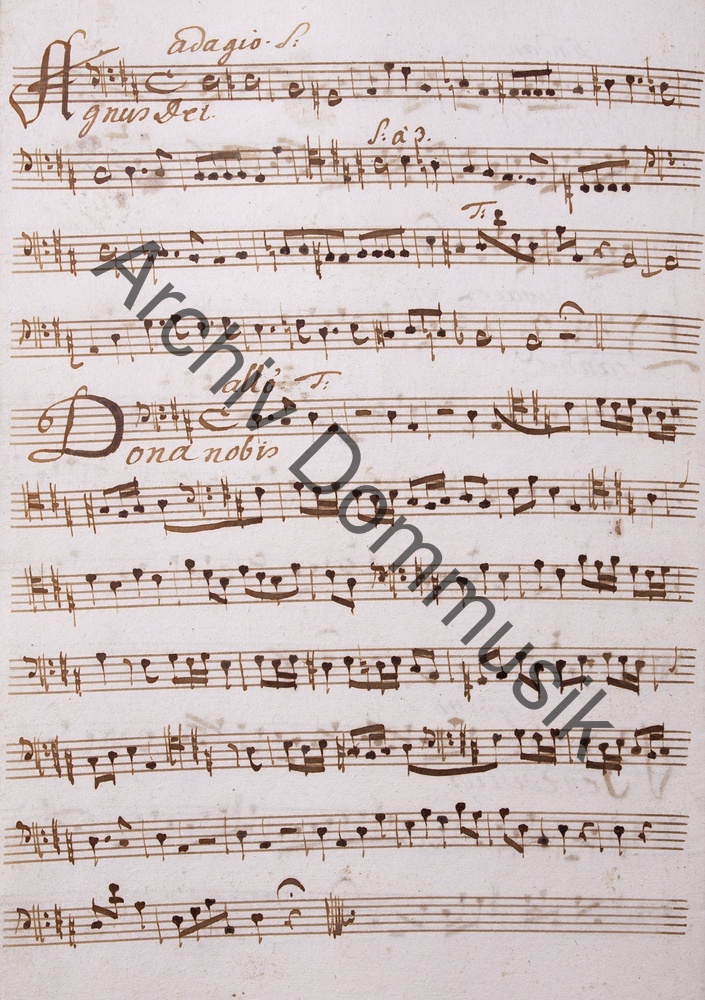 adagio. S:
Agnus Dei
S: à 3.
T:
allo T:
Dona nobis
Archiv Dommusik